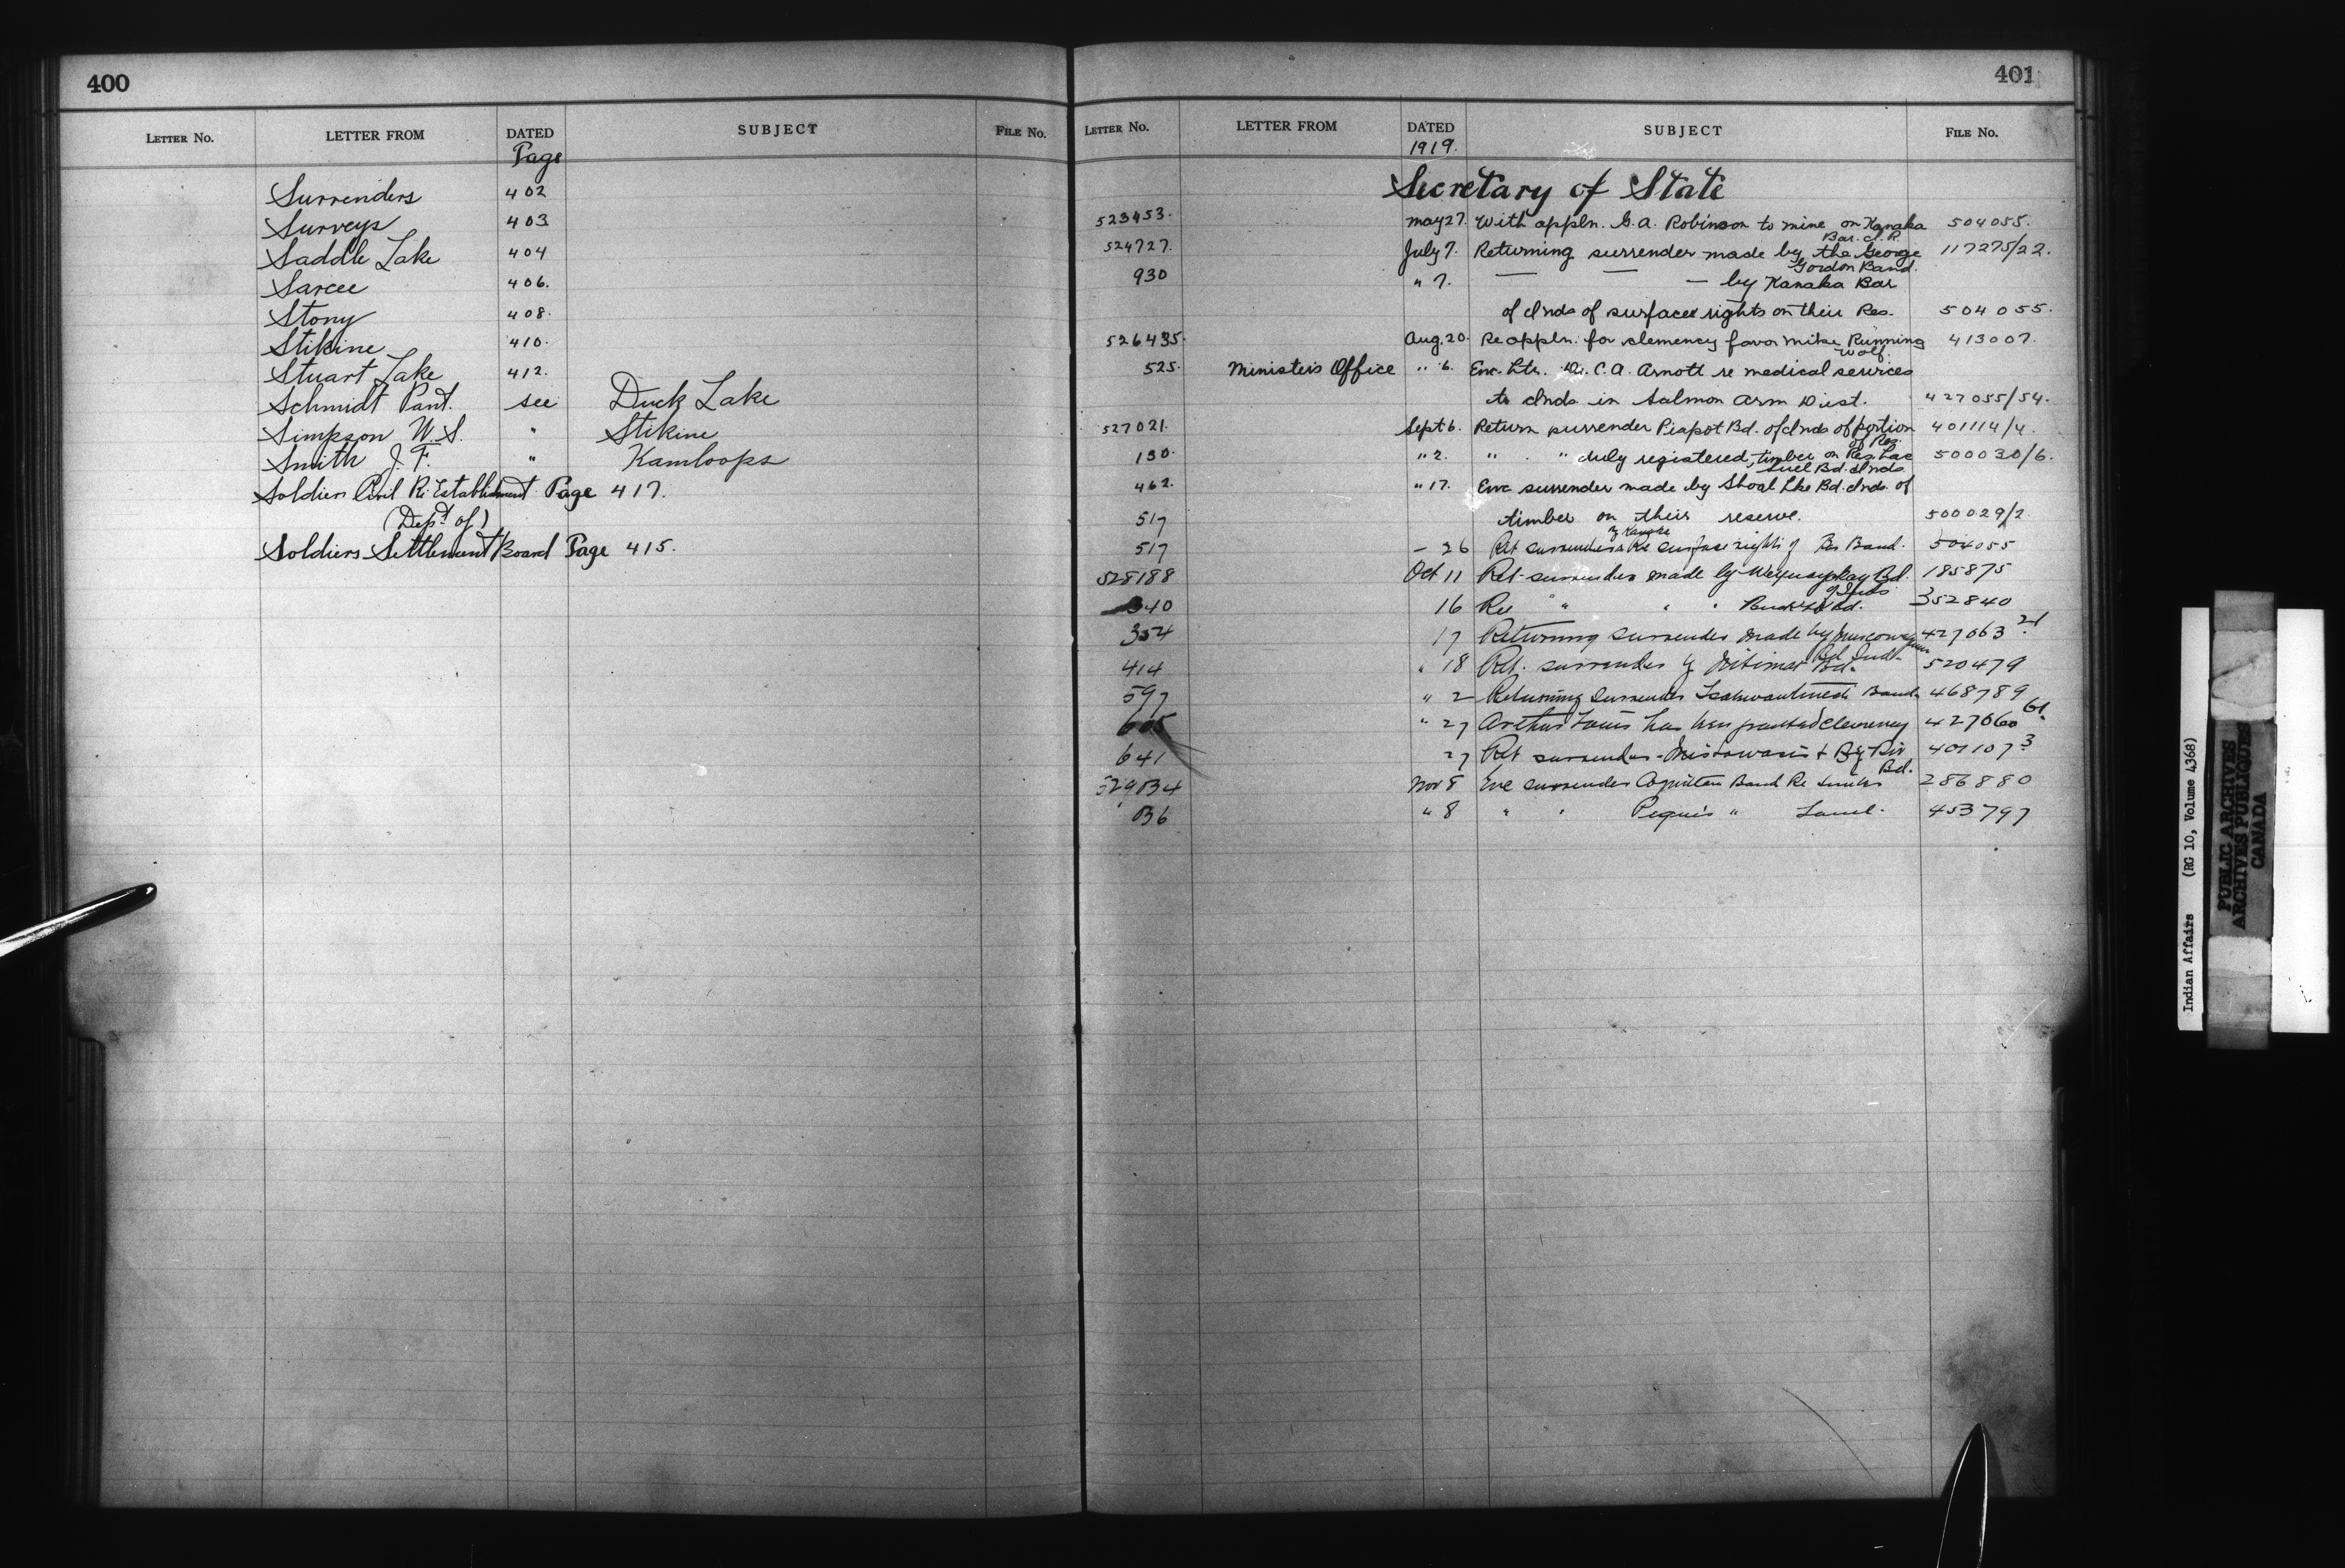 400
LETTER No. LETTER FROM DATED SUBJECT FILE No.
Page
Surrenders 402
Surveys 403
Saddle Lake 404
Sarcee 406.
Stony 408.
Stikine 410.
Stuart Lake 412.
Schmidt Pant. see Duck Lake
Simpson W. S. " Stikine
Smith J. F. " Kamloops
Soldiers Civil Re-Establishment Page 417.
(Dept of)
Soldiers Settlement Board Page 415.
401
LETTER No. LETTER FROM DATED SUBJECT FILE No.
1919.
Secretary of State
523453. May 27. With appln. G. A. Robinson to mine on Kanaka 504055.
Bar. I. R.
524727. July 7. Returning surrender made by the George 117275/22.
Gordon Band.
930 " 7. — — — by Kanaka Bar
of Inds of surface rights on their Res. 504055.
526435. Aug. 20. Re appln. for clemency favor Mike Running 413007.
Wolf.
525. Minister's Office " 6. Enc. Ltr. Dr. C. A. Arnott re medical services
to Inds in Salmon Arm Dist. 427055/54.
527021. Sept 6. Return surrender Piapot Bd. of Inds of portion 401114/4.
of Res.
130. " 2. " " duly registered, timber on Res. Lac 500030/6.
Suel Bd. Inds.
462. " 17. Enc surrender made by Shoal Lke Bd. Inds. of
517 timber on their reserve. 500029/2
517 – 26 Ret surrenders Re surface rights of Band. 504055
528188 Oct 11 Ret surrender made by Bd. 185875
of Inds
340 16 Re " " " Bd. 352840
354 17 Returning surrender made by 427063 21.
Bd. Inds.
414 " 18 Ret. surrender by Kitimat Bd. 520479
597 " 2 Returning Surrender Band 468789
605 " 27 Arthur Louis has been granted clemency 427060 61.
641 27 Ret surrender - Mistawasis + Big Riv 401107 3
Bd.
529034 Nov 8 Enc surrender Band Re 286880
036 " 8 " " Peguis " Land. 453797
Indian Affairs (RG 10, Volume 4368)
PUBLIC ARCHIVES
ARCHIVES PUBLIQUES
CANADA